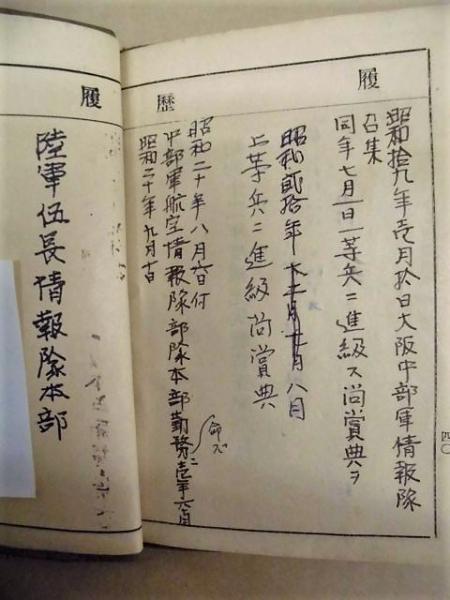 履
歴
昭和拾九年壱月於日大阪中部軍情報隊
召集
同年七月一日一等兵ニ進級ス尚賞典ヲ
昭和貳拾年 八月
上等兵ニ進級尚賞典
昭和二十年八月 日付
中部軍航空情報隊部隊本部勤務ニ命ズ壱年六
昭和二十年九月 日
四〇
履
陸軍伍長情報隊本部